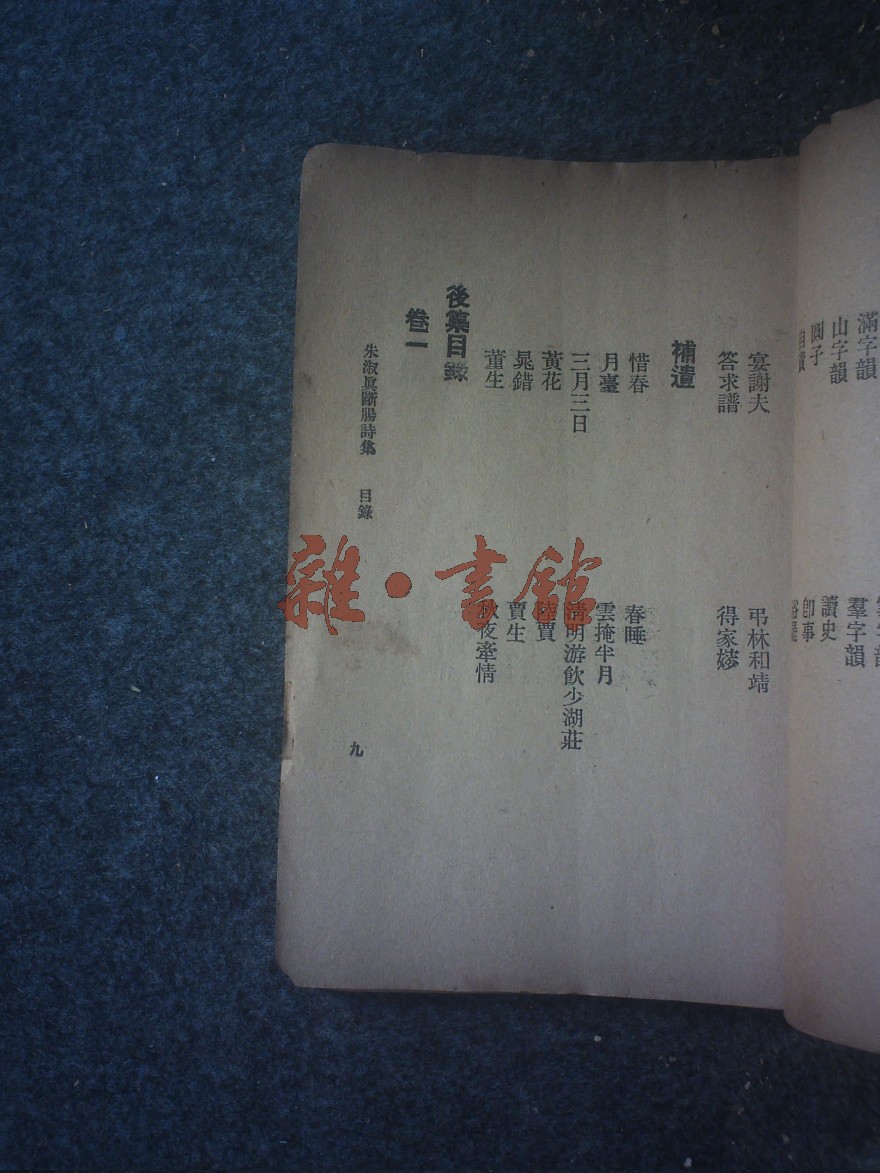 滿字韻
山字韻
羣字韻
圓子
讀史
卽事
宴謝夫
弔林和靖
答求譜
得家嫂
補遺
惜春
春睡
月臺
雲掩半月
三月三日
清明游飮少湖莊
黃花
陸賈
晁錯
賈生
董生
秋夜牽情
後集目錄
卷一
朱淑眞斷腸詩集 目錄
九
雜·書館